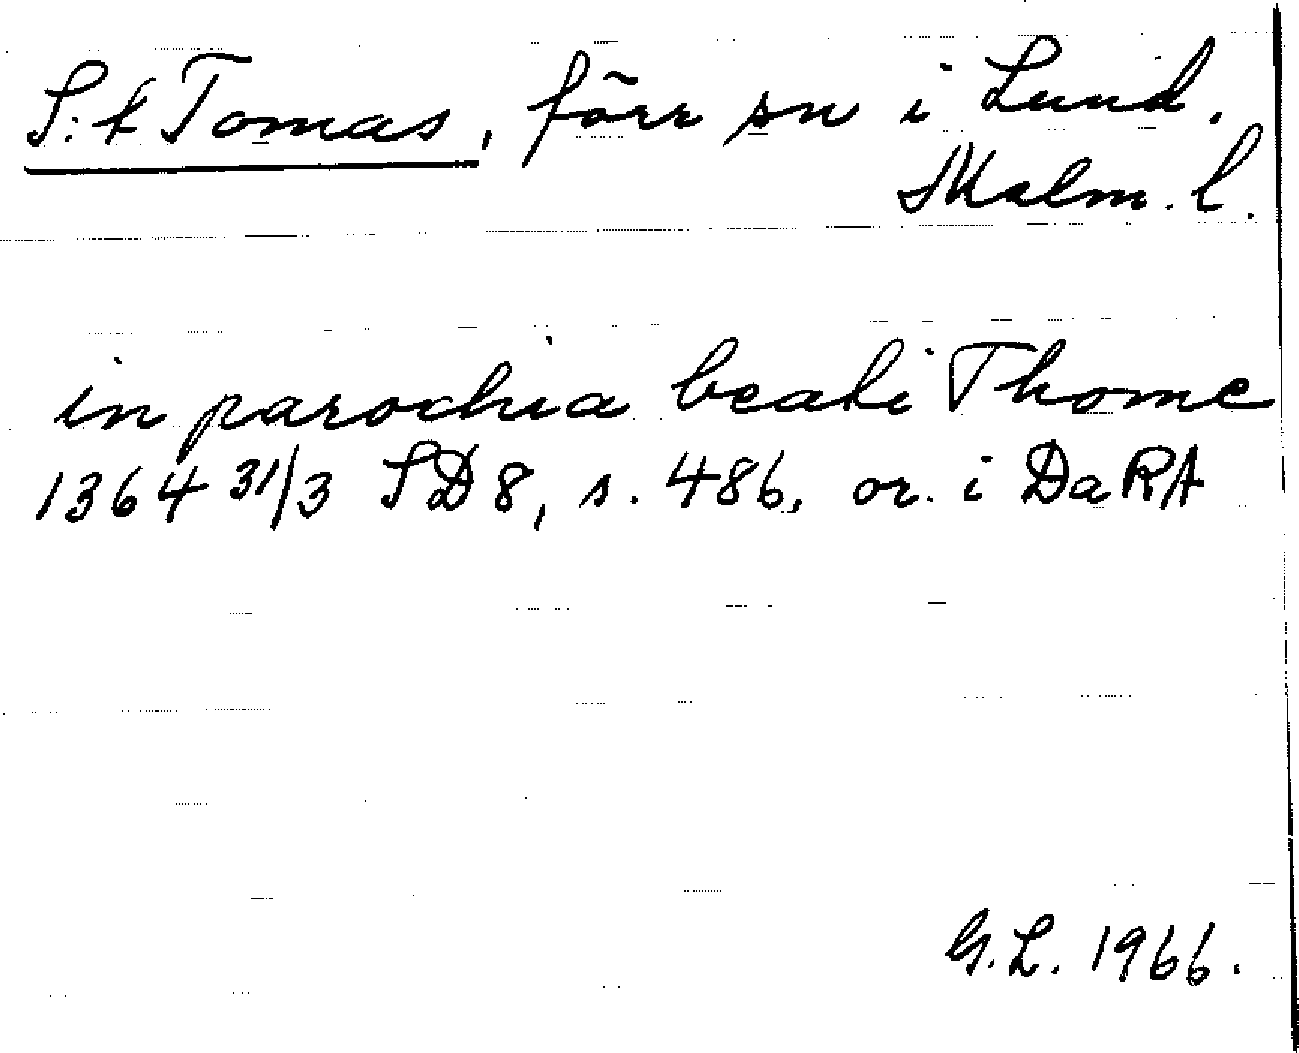 S:t Tomas, förr sn i Lund.
Malm. l.
in parochia beati Thome
1364 31/3 SD 8, s. 486, or. i DaRA
G.L. 1966.